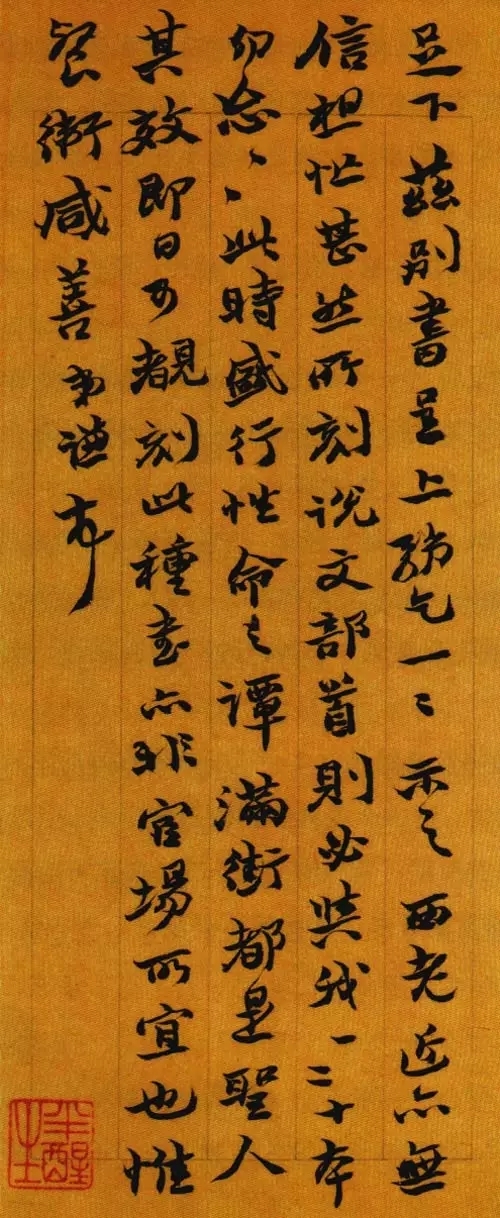 足下茲別書呈上務乞一二示之西老近亦無
信想忙甚然所刻說文部首則必與我一二十本
勿忘〻〻此時盛行性命之譚滿街都是聖人
其效即日可覩刻此種書亦非官場所宜也惟
餐衛咸善弟謙